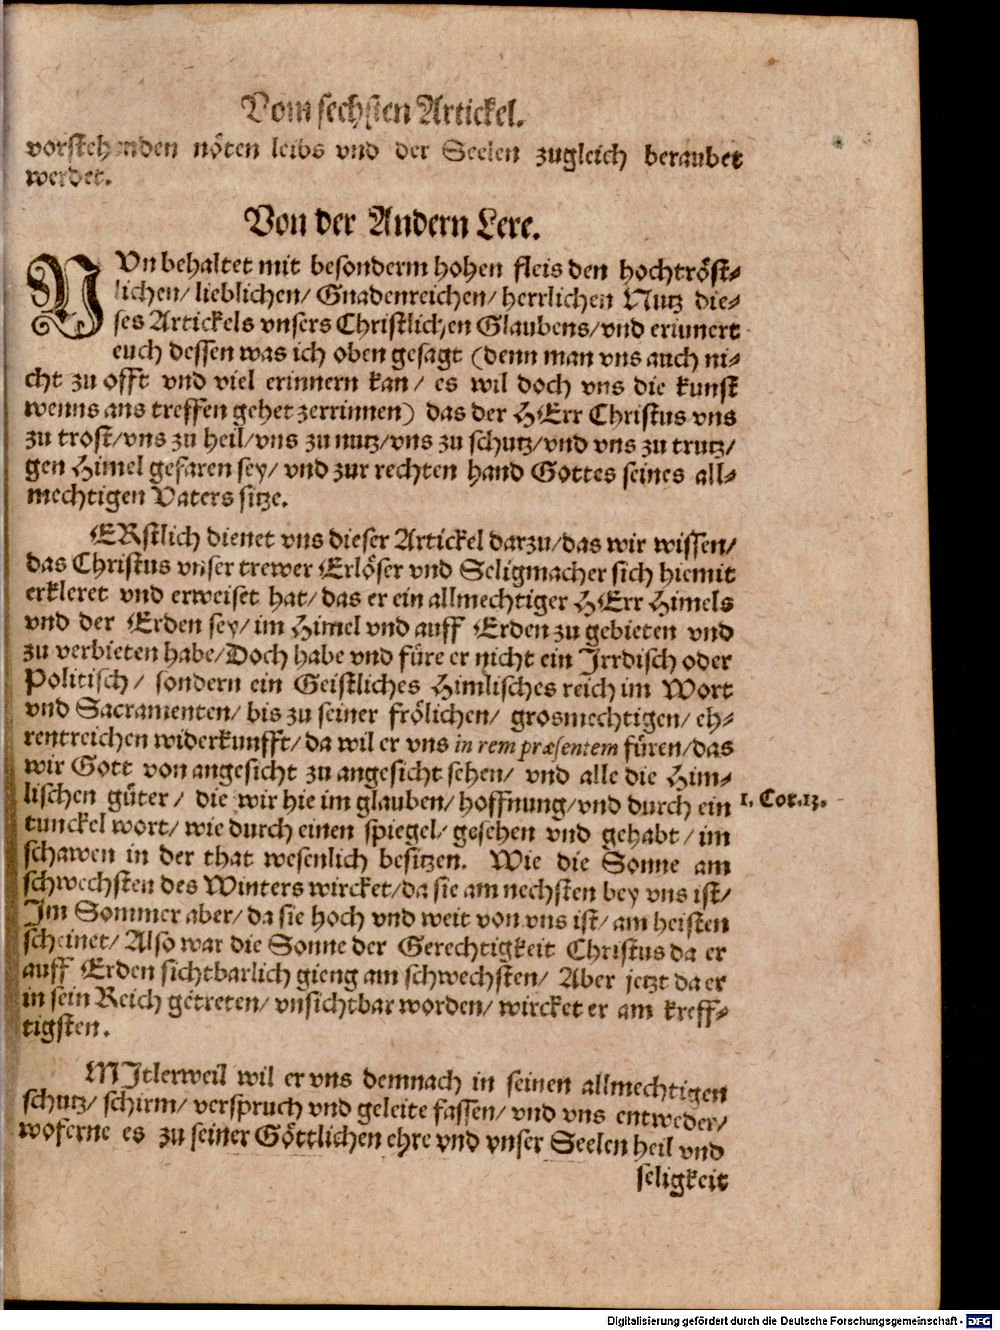 Vom sechsten Artickel.
vorstehenden nöten leibs vnd der Seelen zugleich beraubet
werdet.
Von der Andern Lere.
NVn behaltet mit besonderm hohen fleis den hochtröst-
lichen/ lieblichen/ Gnadenreichen/ herrlichen Nutz die-
ses Artickels vnsers Christlichen Glaubens/ vnd erinnert
euch dessen was ich oben gesagt (denn man vns auch ni-
cht zu offt vnd viel erinnern kan/ es wil doch vns die kunst
wenns ans treffen gehet zerrinnen) das der HErr Christus vns
zu trost/ vns zu heil/ vns zu nutz/ vns zu schutz/ vnd vns zu trutz/
gen Himel gefaren sey/ vnd zur rechten hand Gottes seines all-
mechtigen Vaters sitze.
ERstlich dienet vns dieser Artickel darzu/ das wir wissen/
das Christus vnser trewer Erlöser vnd Seligmacher sich hiemit
erkleret vnd erweiset hat/ das er ein allmechtiger HErr Himels
vnd der Erden sey/ im Himel vnd auff Erden zu gebieten vnd
zu verbieten habe/ Doch habe vnd füre er nicht ein Irrdisch oder
Politisch/ sondern ein Geistliches Himlisches reich im Wort
vnd Sacramenten/ bis zu seiner frölichen/ grosmechtigen/ eh-
rentreichen widerkunfft/ da wil er vns in rem præsentem füren/ das
wir Gott von angesicht zu angesicht sehen/ vnd alle die Him-
lischen güter/ die wir hie im glauben/ hoffnung/ vnd durch ein
1. Cor. 13.
tunckel wort/ wie durch einen spiegel/ gesehen vnd gehabt/ im
schawen in der that wesenlich besitzen. Wie die Sonne am
schwechsten des Winters wircket/ da sie am nechsten bey vns ist/
Im Sommer aber/ da sie hoch vnd weit von vns ist/ am heisten
scheinet/ Also war die Sonne der Gerechtigkeit Christus da er
auff Erden sichtbarlich gieng am schwechsten/ Aber jetzt da er
in sein Reich getreten/ vnsichtbar worden/ wircket er am kreff-
tigsten.
MItlerweil wil er vns demnach in seinen allmechtigen
schutz/ schirm/ verspruch vnd geleite fassen/ vnd vns entweder/
woferne es zu seiner Göttlichen ehre vnd vnser Seelen heil vnd
seligkeit
Digitalisierung gefördert durch die Deutsche Forschungsgemeinschaft - DFG